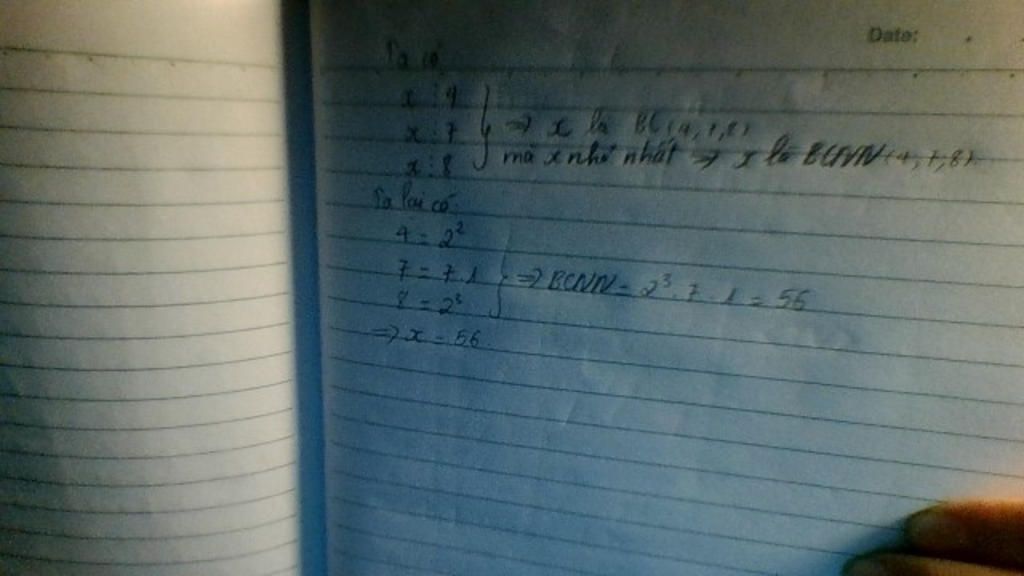 Date:
Ta có
x ⋮ 4
x ⋮ 7
x ⋮ 8
⇒ x là BC(4,7,8)
mà x nhỏ nhất ⇒ x là BCNN(4,7,8)
Ta lại có
4 = 2²
7 = 7.1
8 = 2³
⇒ BCNN = 2³.7.1 = 56
⇒ x = 56